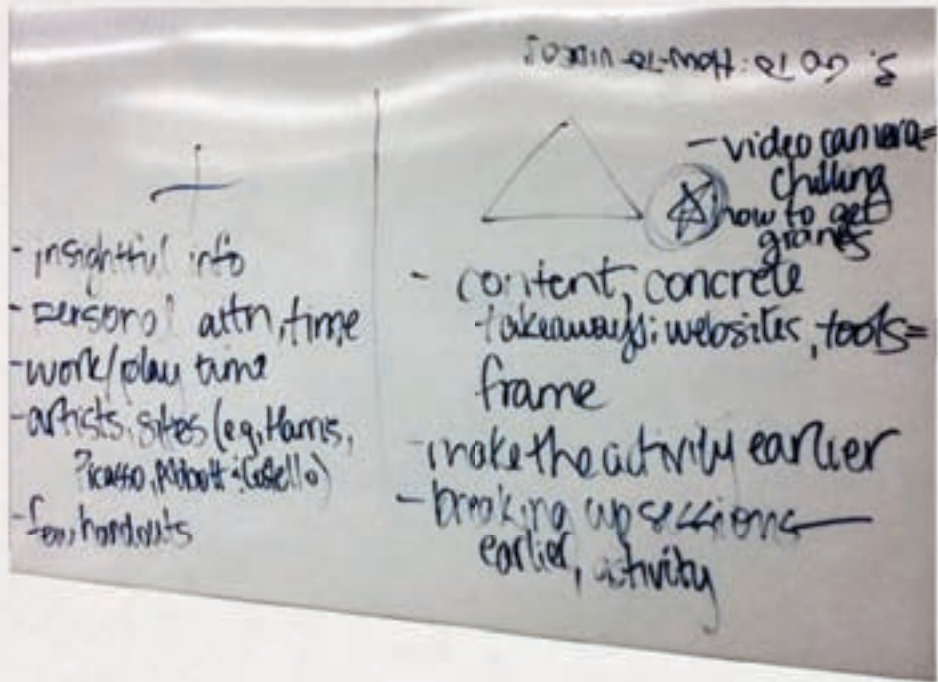 3. GO TO: HOW-TO VIDEOS
- insightful info
- personal attn, time
- work/play time
- artists, sites (e.g, Harris,
Picasso, Abbott & Costello)
- few handouts
- video camera =
chilling
how to get
grants
- content, concrete
takeaways: websites, tools =
frame
- make the activity earlier
- breaking up sessions
earlier, activity